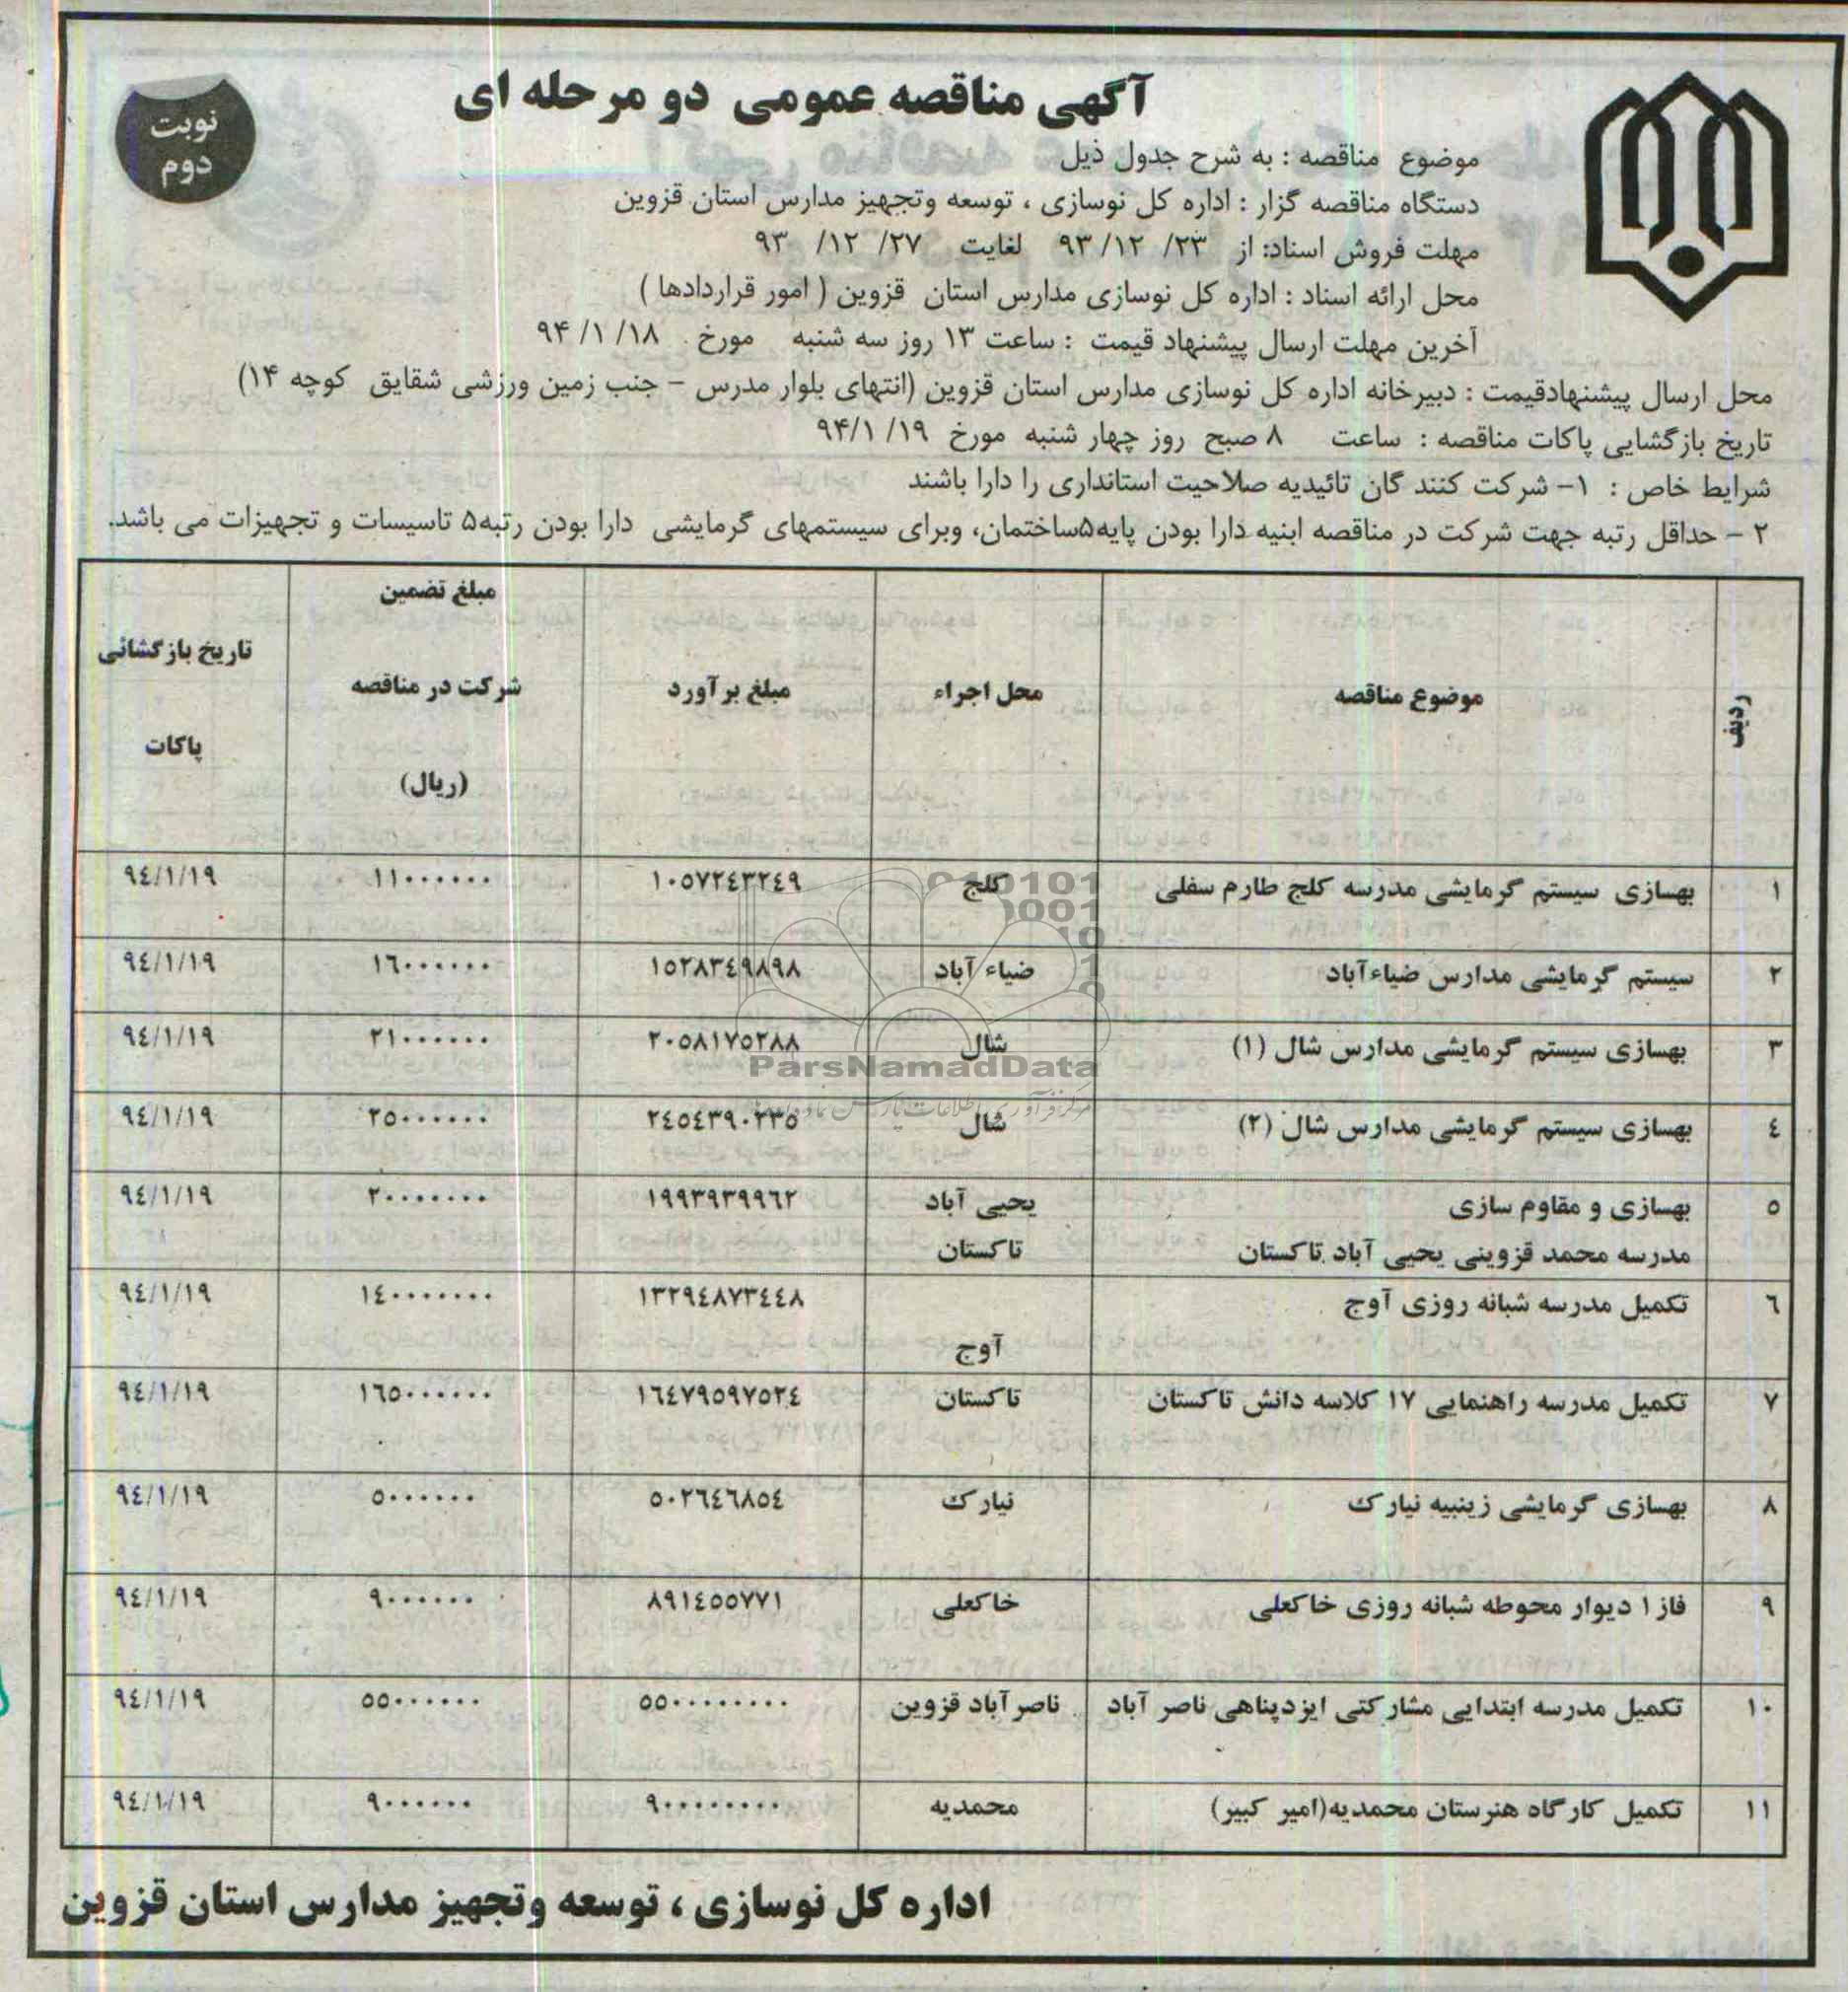 آگهی مناقصه عمومی دو مرحله ای
نوبت
دوم
موضوع مناقصه : به شرح جدول ذیل
دستگاه مناقصه گزار : اداره کل نوسازی ، توسعه وتجهیز مدارس استان قزوین
مهلت فروش اسناد: از ۲۳/ ۱۲/ ۹۳ لغایت ۲۷/ ۱۲/ ۹۳
محل ارائه اسناد : اداره کل نوسازی مدارس استان قزوین ( امور قراردادها )
آخرین مهلت ارسال پیشنهاد قیمت : ساعت ۱۳ روز سه شنبه مورخ ۱۸/ ۱/ ۹۴
محل ارسال پیشنهادقیمت : دبیرخانه اداره کل نوسازی مدارس استان قزوین (انتهای بلوار مدرس – جنب زمین ورزشی شقایق کوچه ۱۴)
تاریخ بازگشایی پاکات مناقصه : ساعت ۸ صبح روز چهار شنبه مورخ ۱۹/ ۹۴/۱
شرایط خاص : ۱- شرکت کنند گان تائیدیه صلاحیت استانداری را دارا باشند
۲ – حداقل رتبه جهت شرکت در مناقصه ابنیه دارا بودن پایه۵ساختمان، وبرای سیستمهای گرمایشی دارا بودن رتبه۵ تاسیسات و تجهیزات می باشد.
ردیف موضوع مناقصه محل اجراء مبلغ برآورد مبلغ تضمین شرکت در مناقصه (ریال) تاریخ بازگشائی پاکات
۱ بهسازی سیستم گرمایشی مدرسه کلج طارم سفلی کلج ۱۰۵۷۲٤۳۲٤۹ ۱۱۰۰۰۰۰۰ ۹٤/۱/۱۹
۲ سیستم گرمایشی مدارس ضیاءآباد ضیاء آباد ۱۵۲۸۳٤۹۸۹۸ ۱٦۰۰۰۰۰۰ ۹٤/۱/۱۹
۳ بهسازی سیستم گرمایشی مدارس شال (۱) شال ۲۰۵۸۱۷۵۲۸۸ ۲۱۰۰۰۰۰۰ ۹٤/۱/۱۹
٤ بهسازی سیستم گرمایشی مدارس شال (۲) شال ۲٤۵٤۳۹۰۲۳۵ ۲۵۰۰۰۰۰۰ ۹٤/۱/۱۹
۵ بهسازی و مقاوم سازی یحیی آباد ۱۹۹۳۹۳۹۹٦۲ ۲۰۰۰۰۰۰۰ ۹٤/۱/۱۹
مدرسه محمد قزوینی یحیی آباد تاکستان تاکستان
٦ تکمیل مدرسه شبانه روزی آوج آوج ۱۳۲۹٤۸۷۳٤٤۸ ۱٤۰۰۰۰۰۰۰ ۹٤/۱/۱۹
۷ تکمیل مدرسه راهنمایی ۱۷ کلاسه دانش تاکستان تاکستان ۱٦٤۷۹۵۹۷۵۲٤ ۱٦۵۰۰۰۰۰۰ ۹٤/۱/۱۹
۸ بهسازی گرمایشی زینبیه نیارک نیارک ۵۰۲٦٤٦۸۵٤ ۵۰۰۰۰۰۰ ۹٤/۱/۱۹
۹ فاز۱ دیوار محوطه شبانه روزی خاکعلی خاکعلی ۸۹۱٤۵۵۷۷۱ ۹۰۰۰۰۰۰ ۹٤/۱/۱۹
۱۰ تکمیل مدرسه ابتدایی مشارکتی ایزدپناهی ناصر آباد ناصرآباد قزوین ۵۵۰۰۰۰۰۰۰۰ ۵۵۰۰۰۰۰۰ ۹٤/۱/۱۹
۱۱ تکمیل کارگاه هنرستان محمدیه(امیر کبیر) محمدیه ۹۰۰۰۰۰۰۰۰۰ ۹۰۰۰۰۰۰ ۹٤/۱/۱۹
ParsNamadData
اداره کل نوسازی ، توسعه وتجهیز مدارس استان قزوین